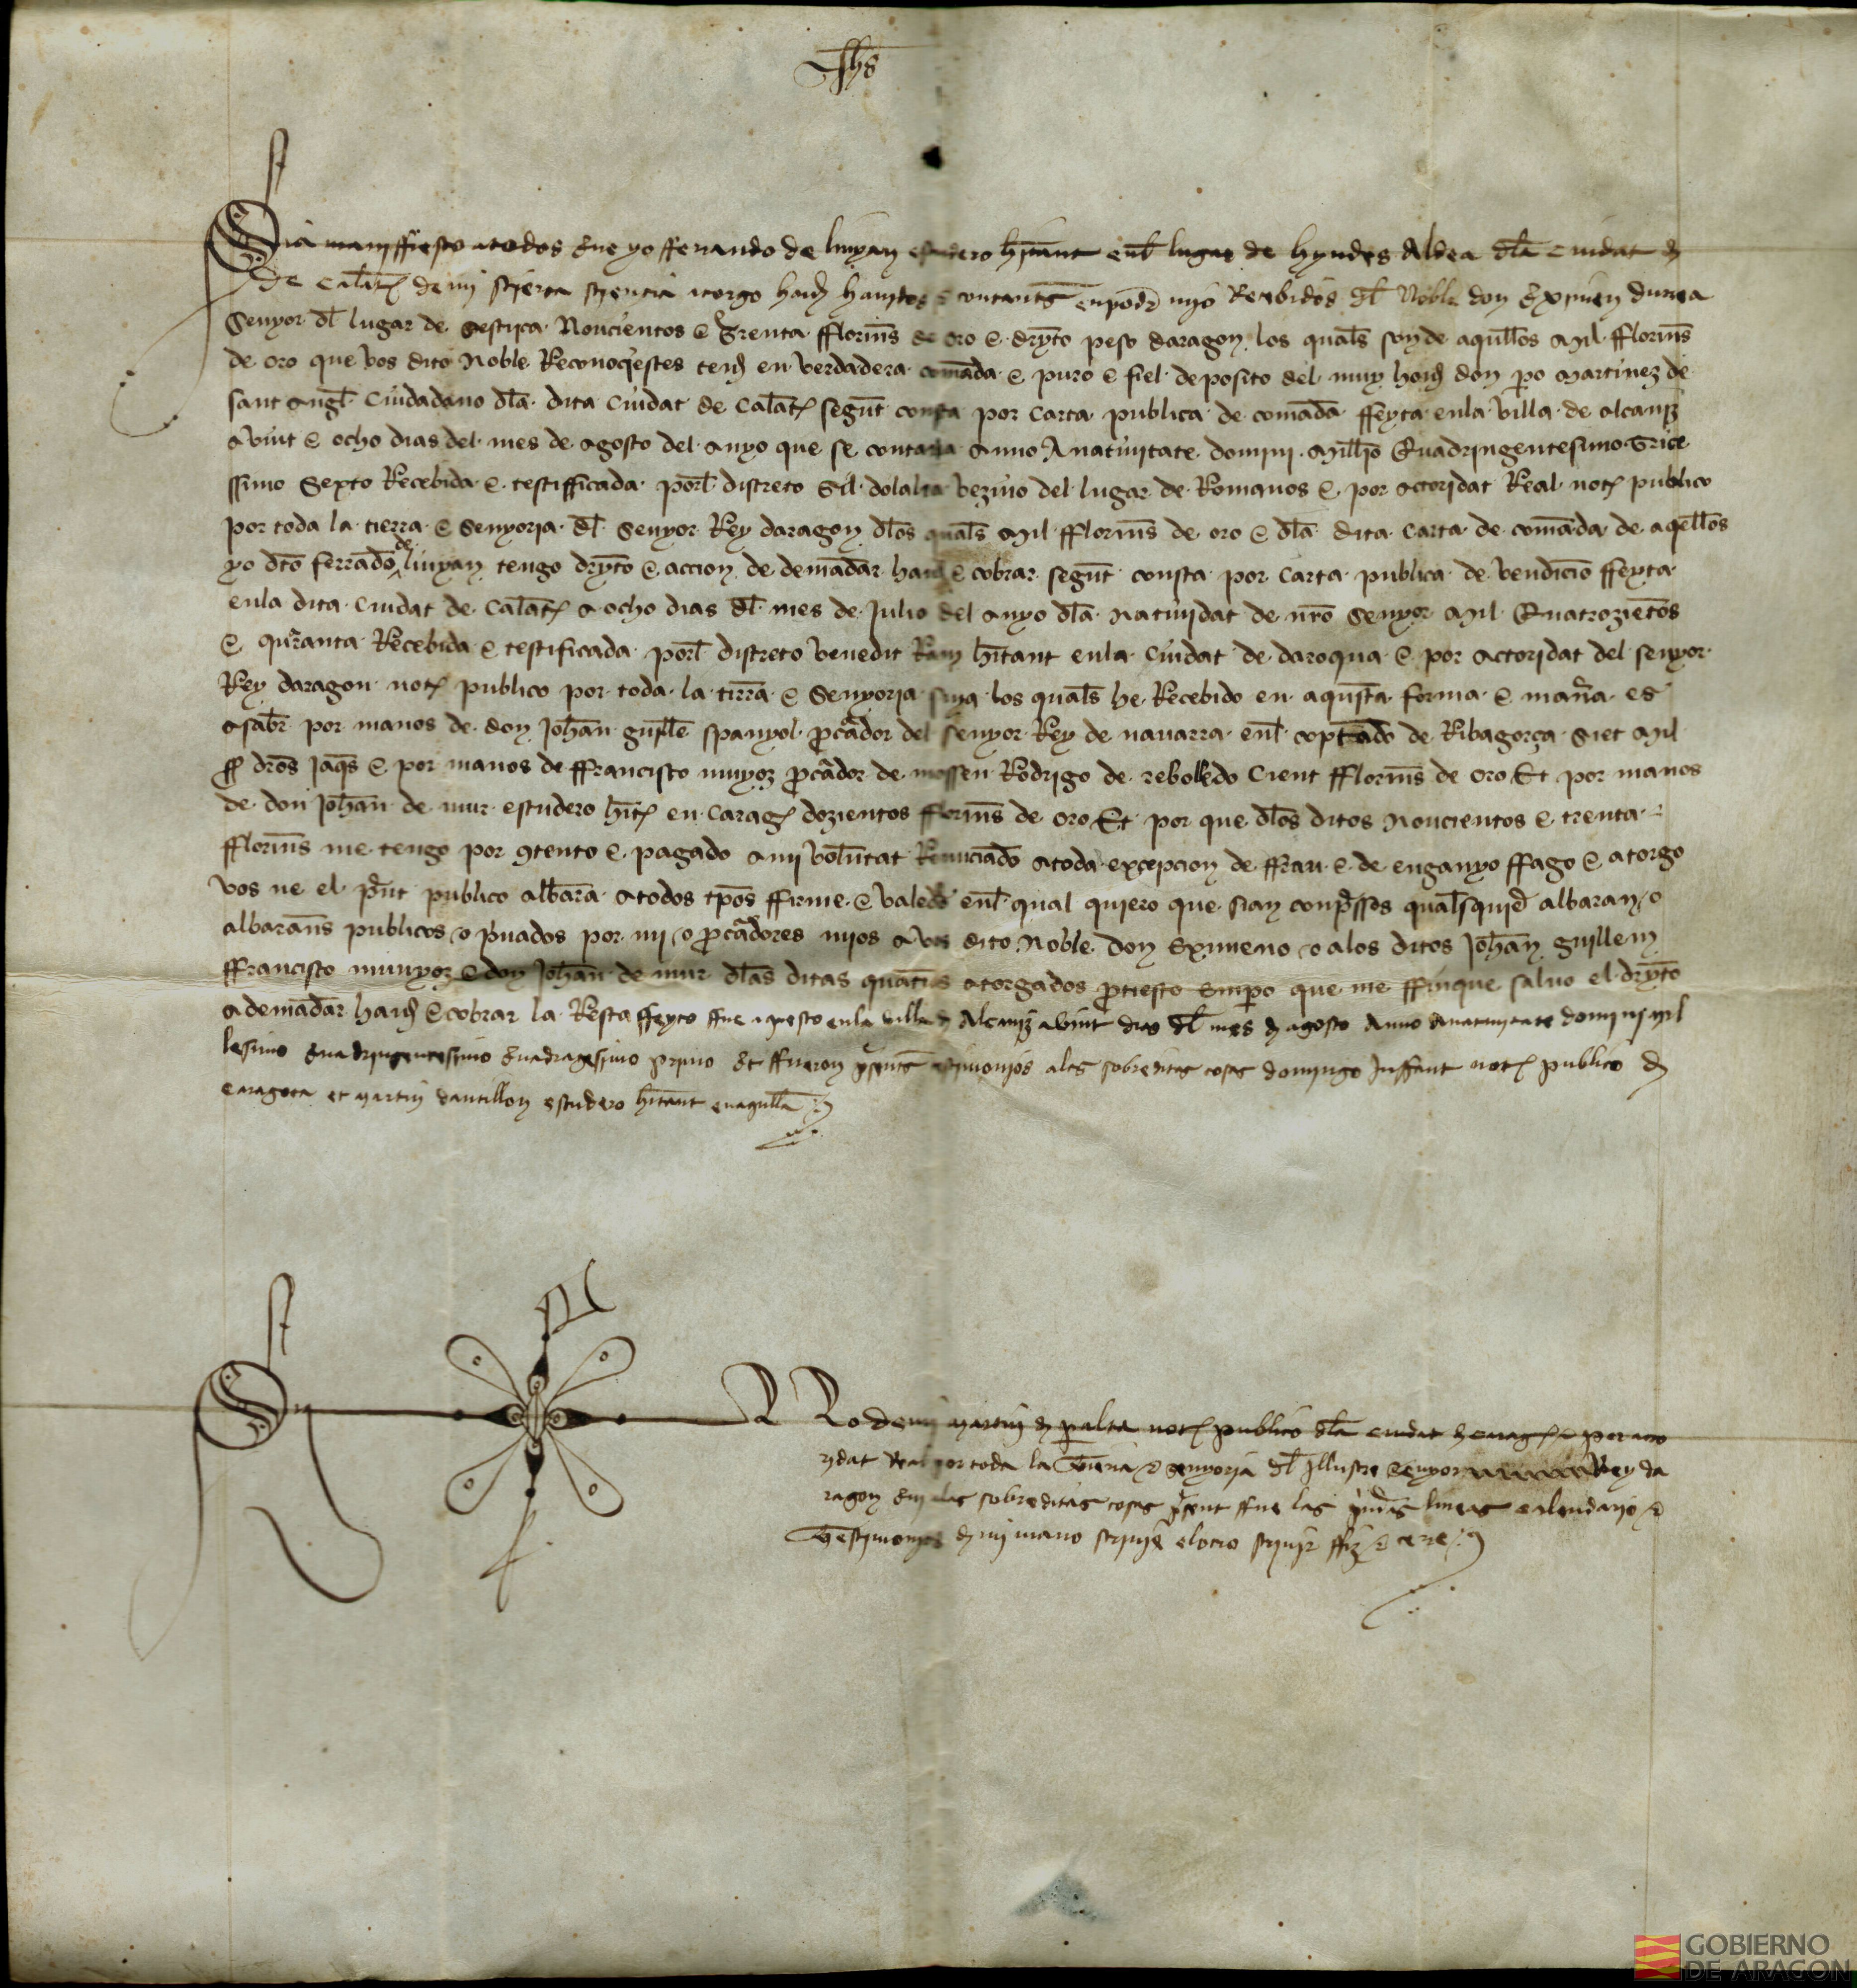 Jhs
Sia maniffiesto a todos que yo fferrando de linyan escudero hitant enl lugar de hyndes aldea dla ciudat d
de calat de mi scierta sciencia atorgo hauer hauidos e contants en poder mio Recebidos dl Noble don Eximen durrea
Senyor dl lugar de sestrica Noucientos e Trenta fflorins de oro e dryto peso daragon los quals son de aquellos mil fflorins
de oro que vos dito Noble Reconoqiestes tener en verdadera comada e puro e fiel deposito del muy hon don po martinez de
sant angl Ciudadano dla dita Ciudat de Calat segunt consta por carta publica de comada ffeyta en la villa de alcaniz
a vint e ocho dias del mes de agosto del anyo que se contaua anno A natiuitate domini millio Quadringentesimo Trice
ssimo Sexto Recebida e testifficada porl discreto Gil dolalla vezino del lugar de Romanos e por actoridat Real not publico
por toda la tierra e Senyoria dl Senyor Rey daragon dlos quals mil fflorins de oro e dla dita carta de comada de aqellos
yo dto ferrado de linyan tengo dryto e accion de demadar hauer e cobrar segunt consta por carta publica de vendicio ffeyta
en la dita Ciudat de Calat a ocho dias dl mes de Julio del anyo dla natiuidat de nro Senyor mil Quatrozientos
e quranta Recebida e testificada porl discreto benedit Ram hitant en la Ciudat de daroqua e por actoridat del senyor
Rey daragon not publico por toda la tirra e Senyoria suya los quals he Recebido en aqusta forma e manera es
a sabr por manos de don Johan guille spanyol procador del senyor Rey de nauarra enl coptado de Ribagorça Siet mil
ss dros Jaqs e por manos de ffrancisco munyoz procador de mossen Rodrigo de rebolledo Cient fflorins de oro Et por manos
de don Johan de mur escudero hit en Carag dozientos fflorins de oro Et por que dlos ditos Noucientos e trenta
fflorins me tengo por contento e pagado a mi voluntat Renunciado a toda excepcion de ffrau e de enganyo ffago e atorgo
vos ne el prent publico albara a todos tpos ffirme e valedo enl qual quiero que sian conpressos qualsquier albaran o
albarans publicos o priuados por mi o procadores mios a vos dito Noble don Eximeno o a los ditos Johan guillem
ffrancisco munyoz e don Johan de mur dlas ditas quatias atorgados protiesto Empero que me ffinque saluo el dryto
a demadar hauer e cobrar la Resta ffeyto ffue aquesto en la villa d Alcaniz a vint dias dl mes d agosto Anno a natiuitate domini mil
lesimo quadringentesimo quadragesimo primo Et ffueron presents testimonios a las sobreditas cosas domingo Inffant not publico d
caragoca et martin dantillon escudero hitant en aqulla
Sig no de mi martin d peralta not publico dla ciudat d carag e por acto
ridat Real por toda la Tierra e senyoria dl Illustre senyor Rey da
ragon qui a las sobreditas cosas present ffue las primeras lineas calendario e
Testimonios d mi mano scriuie e lo otro scriuir ffiz e cerre
GOBIERNO
DE ARAGON